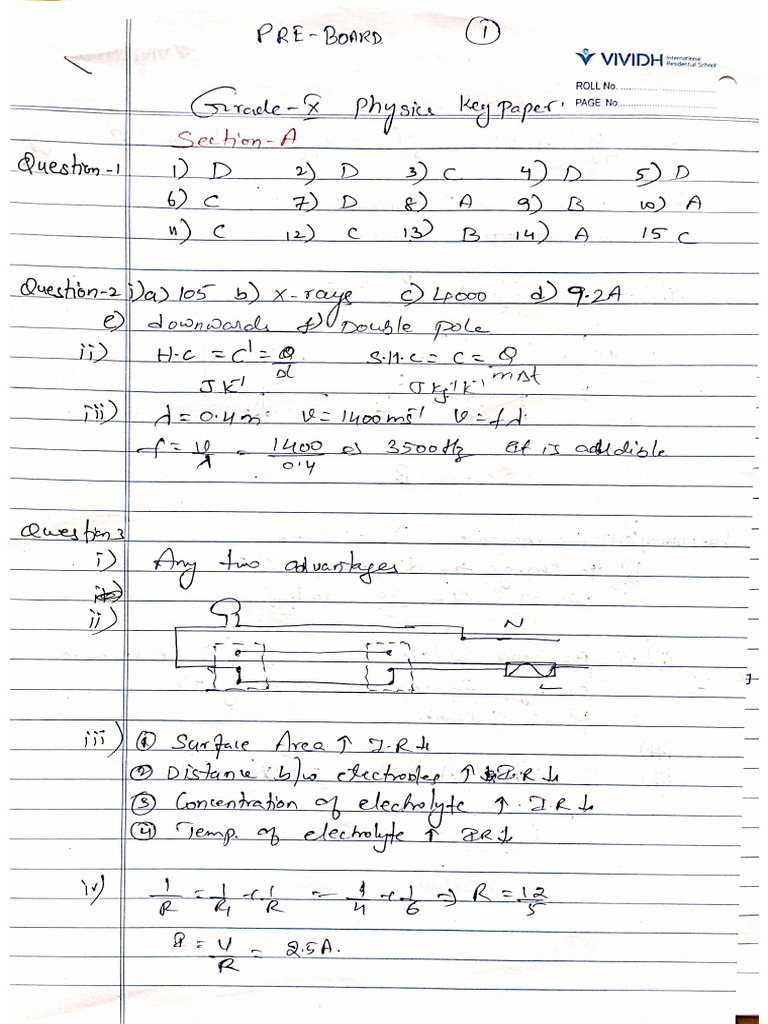 PRE-BOARD ①
VIVIDH International Residential School
ROLL No. ..............................
PAGE No..............................
Grade-X Physics Key Paper.
Section-A
Question-1 1) D 2) D 3) C 4) D 5) D
6) C 7) D 8) A 9) B 10) A
11) C 12) C 13) B 14) A 15 C
Question-2 i) a) 105 b) X-rays c) 4000 d) 9.2A
e) downwards f) Double pole
ii) H.C = C' = Q/Δt S.H.C = C = Q/mΔt
JK⁻¹ JKg⁻¹K⁻¹
iii) λ = 0.4m V = 1400ms⁻¹ V = fλ
f = V/λ = 1400/0.4 = 3500Hz It is auddible
Question 3
i) Any two advantages
ii) N
L
iii) ① Surface Area ↑ I.R↓
② Distance b/w electrodes ↑ I.R ↓
③ Concentration of electrolyte ↑. I.R↓
④ Temp. of electrolyte ↑ IR↓
iv) 1/R = 1/R₁ + 1/R = 1/4 + 1/6 ⇒ R = 12/5
I = V/R = 2.5A.